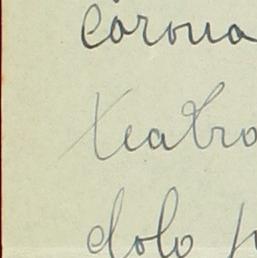 corona
teatro
dolo p